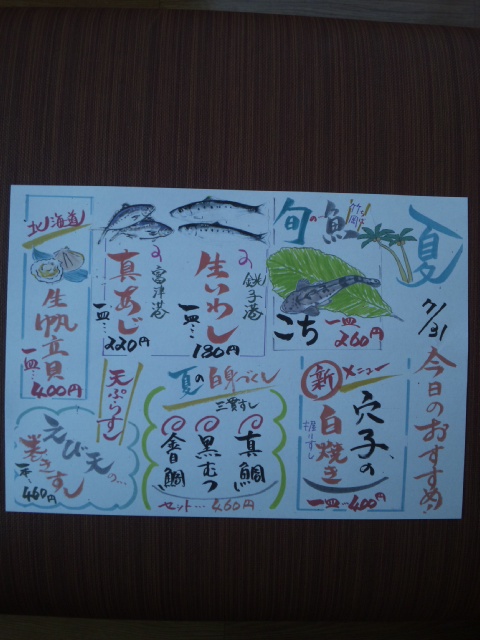 夏
7/31
今日のおすすめ
旬の魚
竹岡
こち
一皿
260円
銚子港
生いわし
一皿…
180円
富津港
真あじ
一皿…
220円
北海道
生帆立貝
一皿…
400円
新メニュー
穴子の
白焼き
握りずし
一皿…400円
夏の白身づくし
三貫ずし
真鯛
黒むつ
金目鯛
セット…460円
天ぷらずし
えび天の…
巻きずし
460円